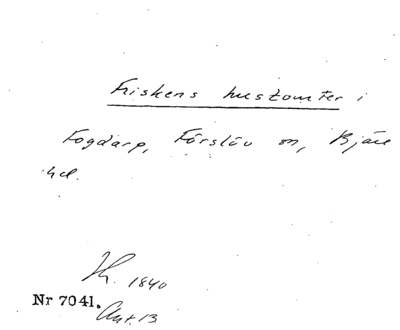 Friskens hustomter i
Fogdarp, Förslöv sn, Bjäre
hd.
Kr. 1840
Nr 7041.
Ant. 13